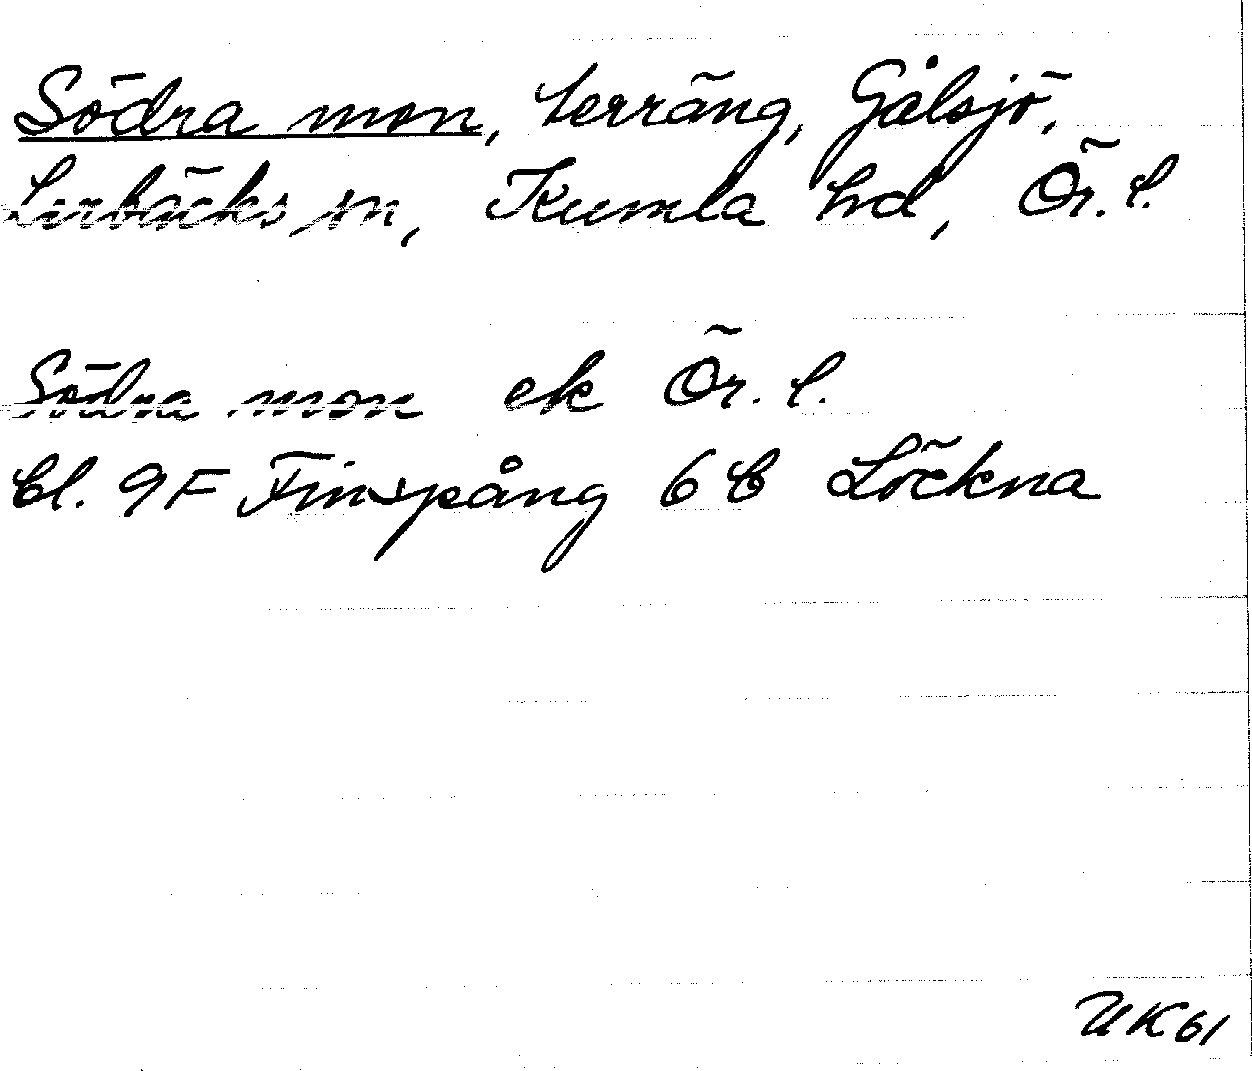 Södra mon, terräng, Gålsjö,
Lerbäcks sn, Kumla hd, Ör. l.
Södra mon ek Ör. l.
bl. 9F Finspång 6 b Löckna
UK 61